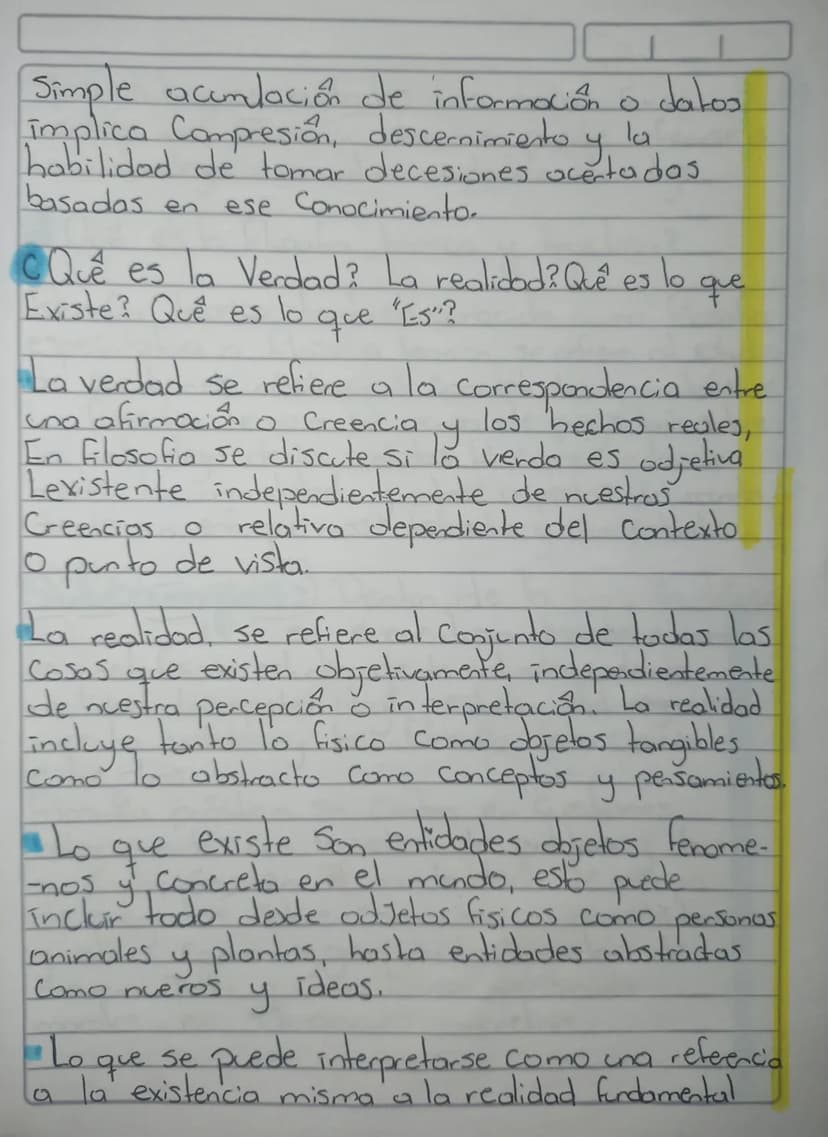 Simple acumlación de información o datos
implica Compresión, descernimiento y la
habilidad de tomar decesiones acertadas
basadas en ese Conocimiento.
¿Qué es la Verdad? La realidad? Qué es lo que
Existe? Qué es lo que "Es"?
La verdad se refiere a la correspondencia entre
una afirmación o Creencia y los hechos reales,
En Filosofia se discute si la verda es adjetiva
Lexistente independientemente de nuestras
Creencias o relativa dependiente del contexto
O punto de vista.
La realidad, se refiere al Conjunto de todas las
Cosas que existen objetivamente, independientemente
de nuestra percepción o interpretación. La realidad
incluye tanto lo fisico como objetos tangibles
como lo abstracto como conceptos y pensamientos.
Lo que existe Son entidades objetos fenome-
-nos y concreta en el mundo, esto puede
incluir todo desde adjetos fisicos como personas
animales y plantas, hasta entidades abstractas
Como nueros y ideas.
Lo que se puede interpretarse como una referencia
a la existencia misma a la realidad fundamental